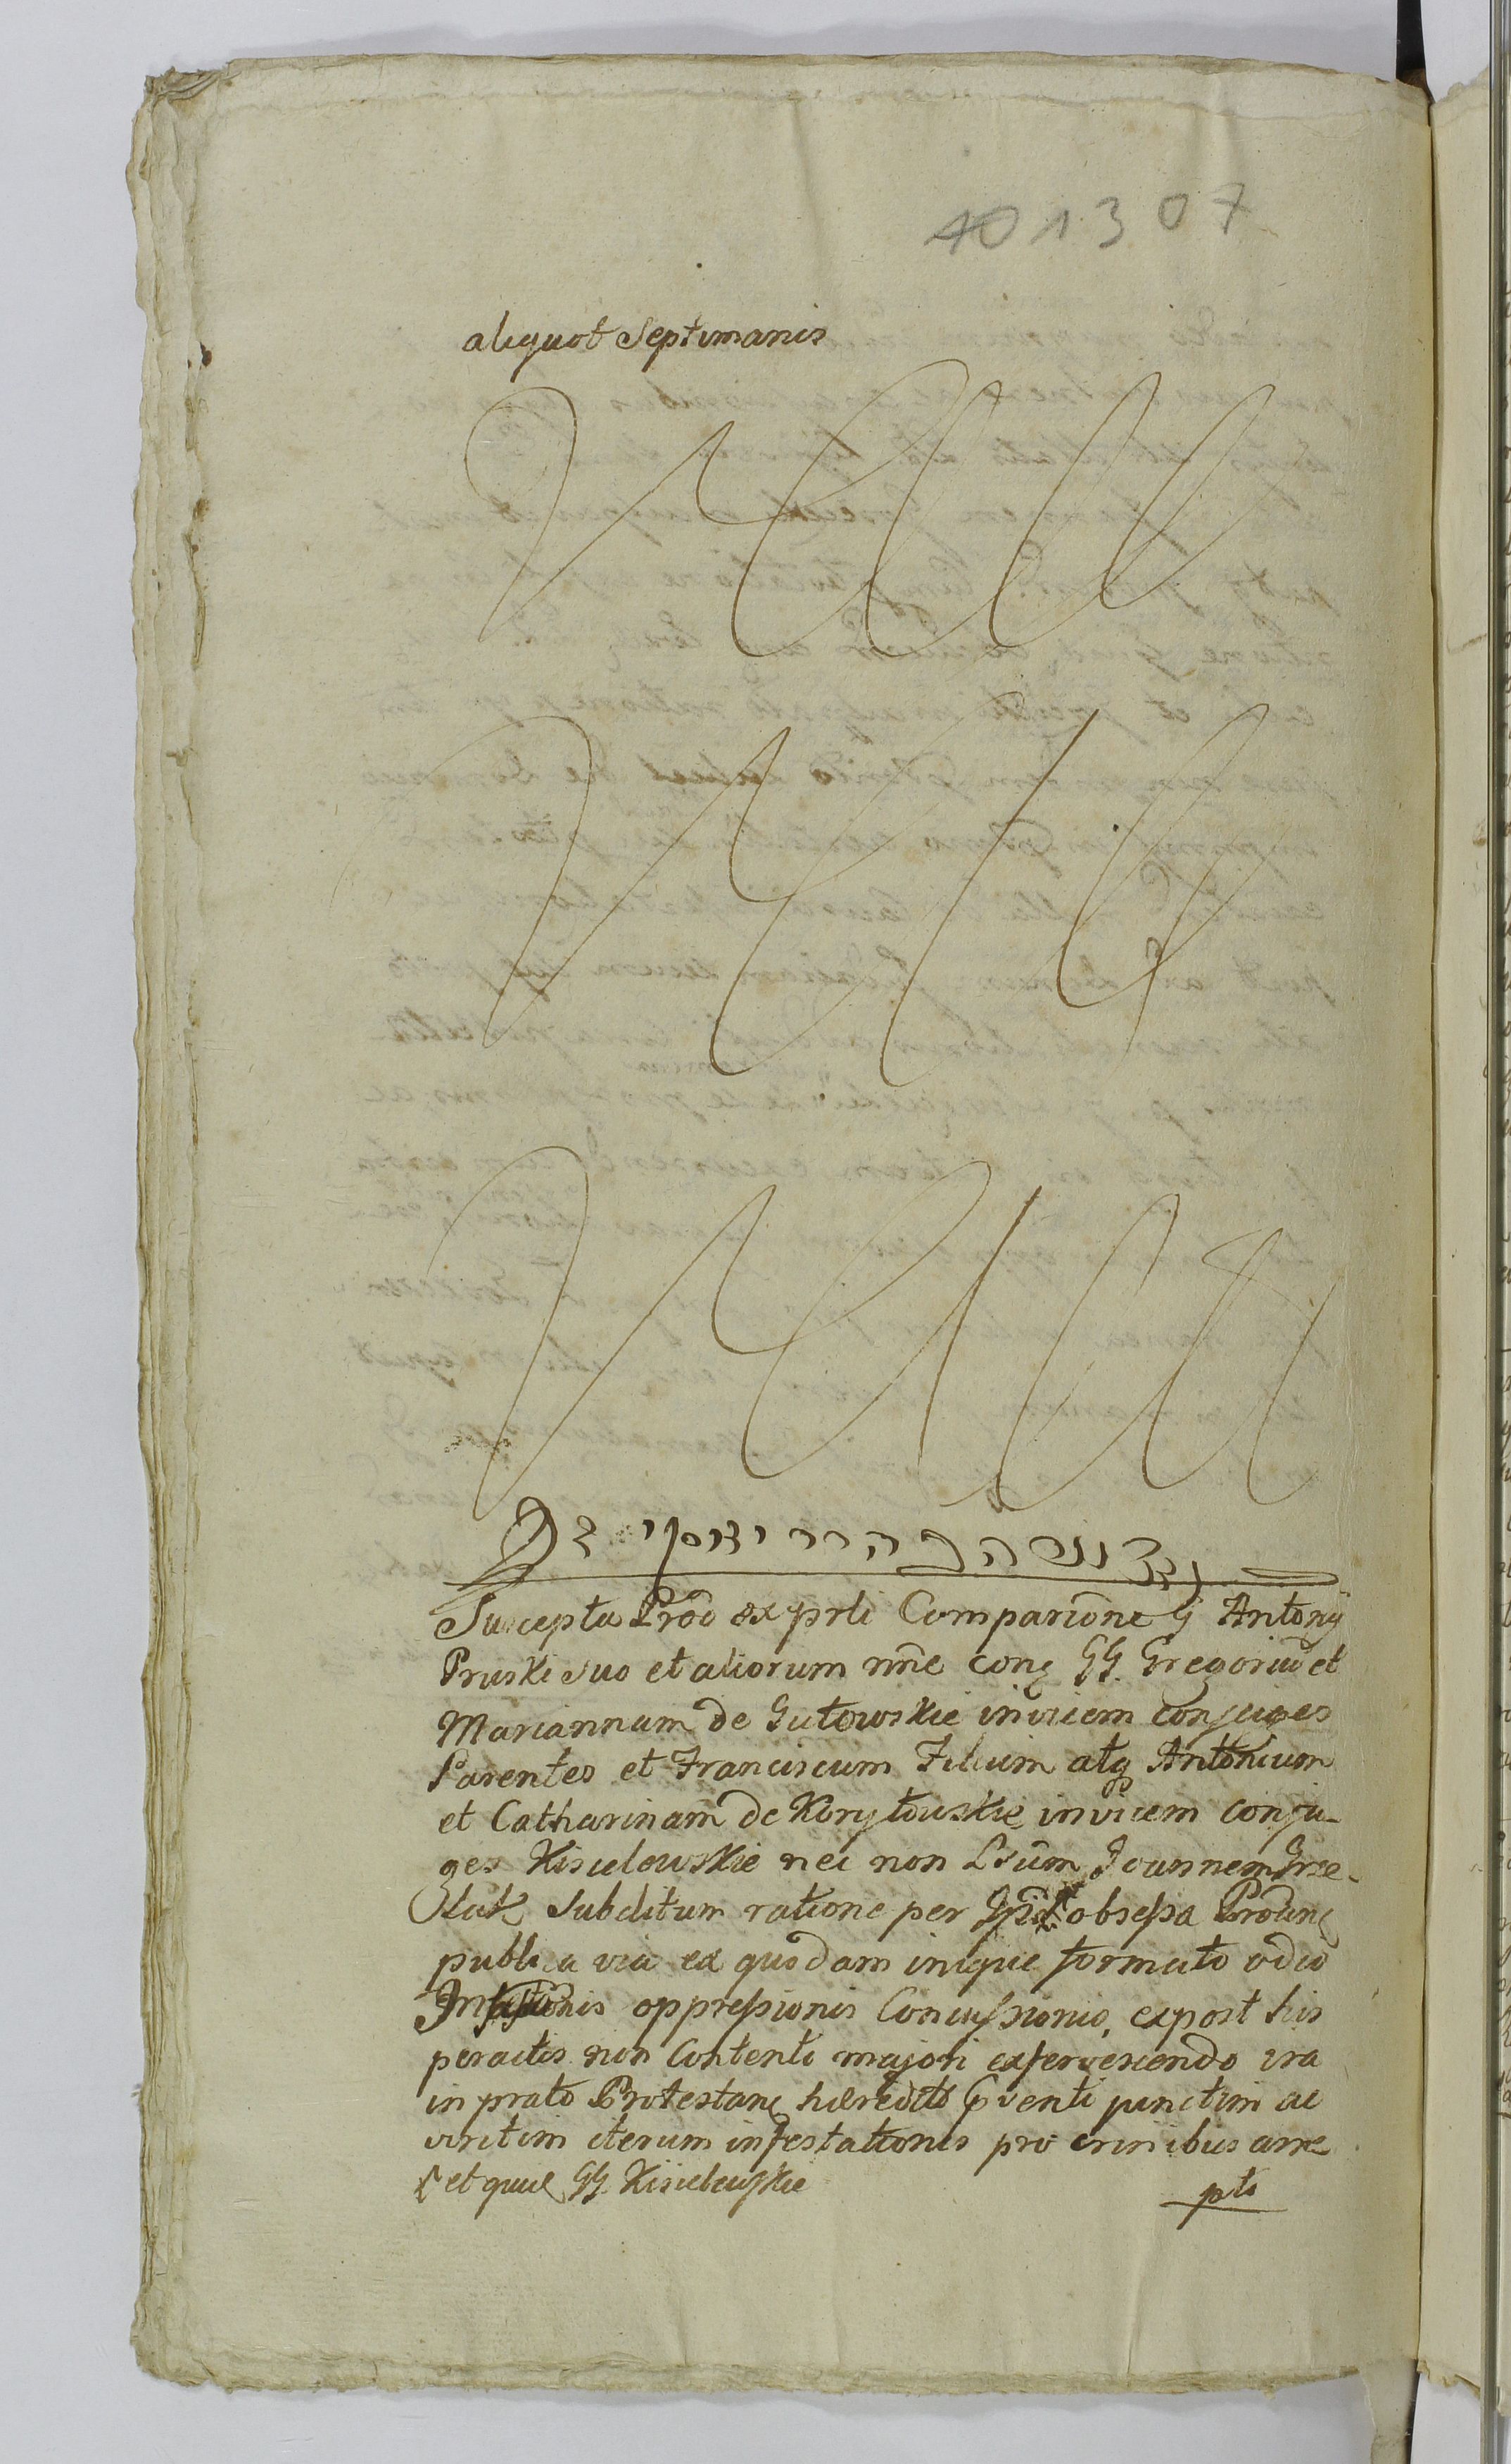 401307
aliquot Septimanis
Suscepta Prõõ ex prli Compariõne G Antonij
Pruski suo et aliorum nñe conq GG. Gregoriũ et
Mariannam de Gutowskie invicem Conjuges
Parentes et Franciscum Filium atq Antonium
et Catharinam de Korytowskie invicem conju-
ges Kisielewskie nec non Lsũm Joannem Grze-
lak Subditum ratione per obsessa Prõtanq
publica via ex quodam inique formato odio
oppressionis Concussionis, expost his
peractis non Contenti majori exfervescendo ira
in prato Protestanq hæredit venti junctim ac
viritim iterum infestationis pro crinibus arre
et GG. Kisielewskie
pts